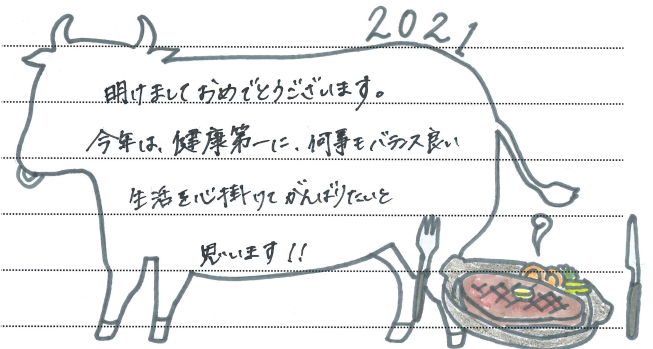 2021
明けましておめでとうございます。
今年は、健康第一に、何事もバランス良い
生活を心掛けてがんばりたいと
思います!!